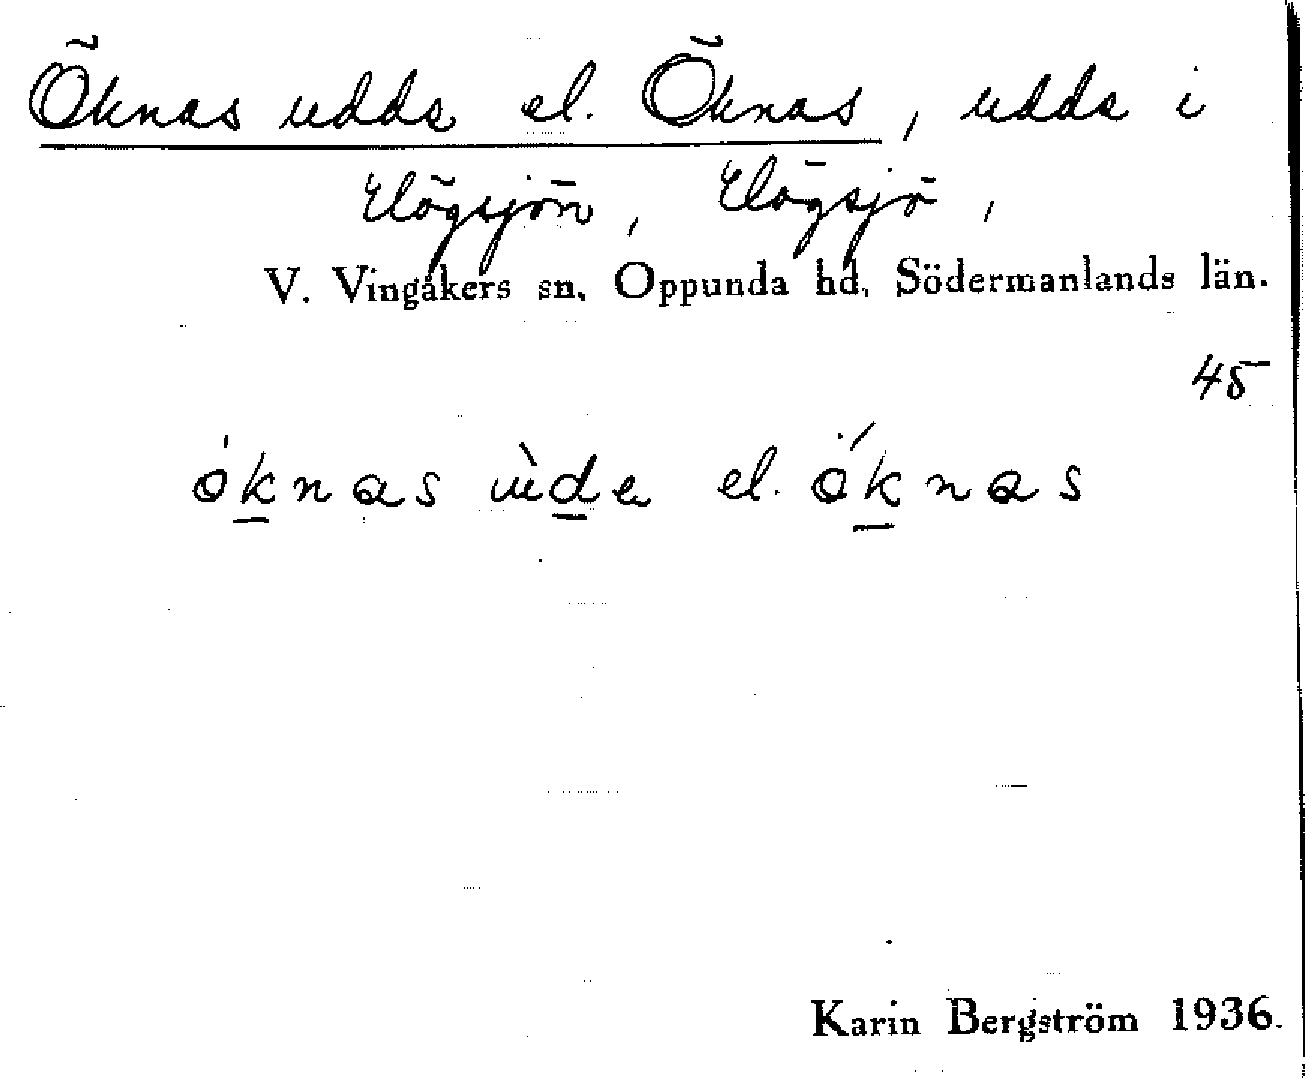 Öknas udde el. Öknas, udde i
Högsjön, Högsjö,
V. Vingåkers sn, Oppunda hd, Södermanlands län.
45
öknas ùde el. öknas
Karin Bergström 1936.